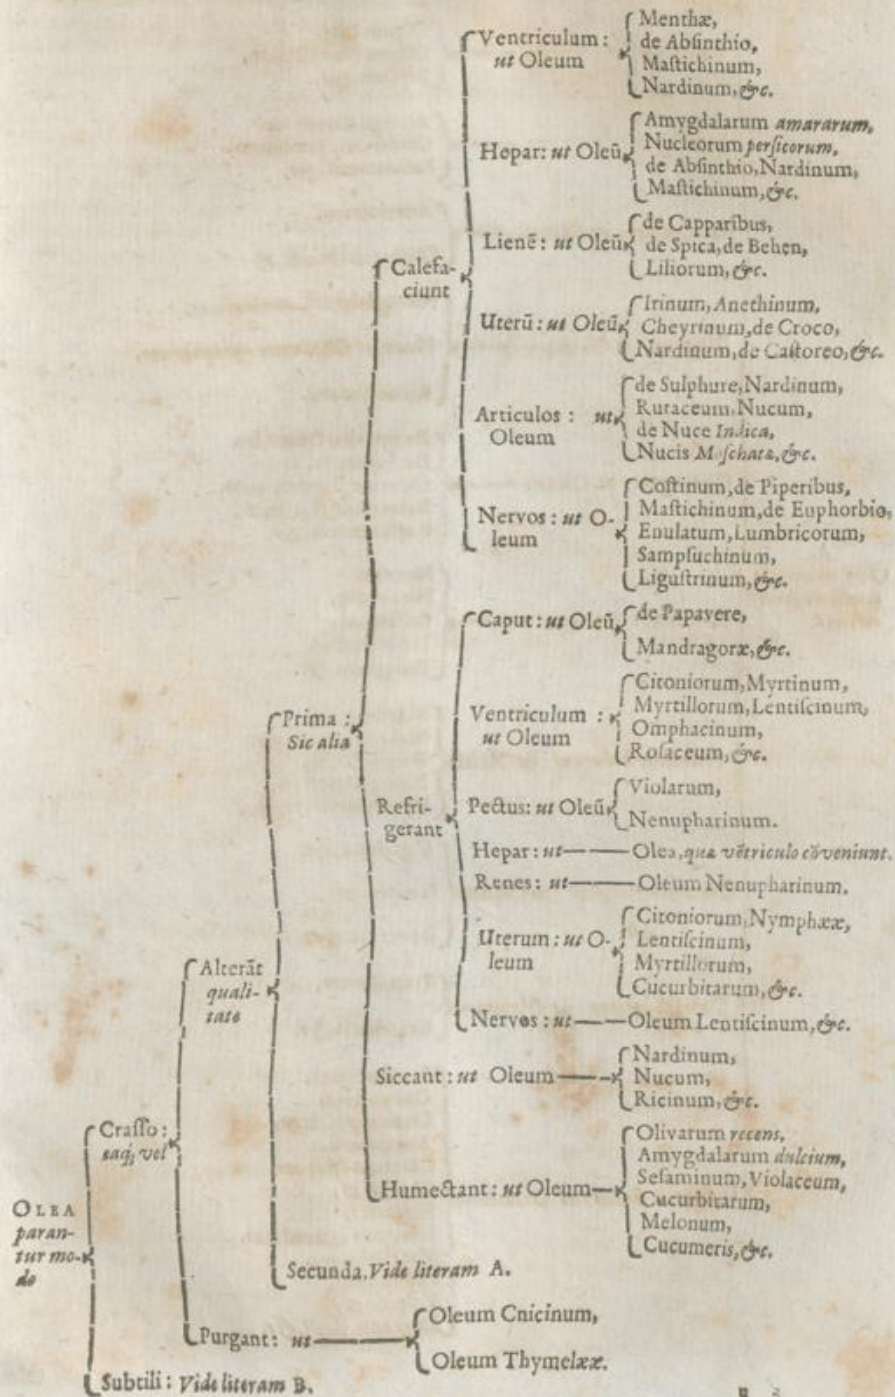 Ventriculum :
ut Oleum
Menthæ,
de Abſinthio,
Maſtichinum,
Nardinum, &c.
Hepar: ut Oleũ
Amygdalarum amararum,
Nucleorum perſicorum,
de Abſinthio, Nardinum,
Maſtichinum, &c.
Lienẽ: ut Oleũ
de Capparibus,
de Spica, de Behen,
Liliorum, &c.
Calefa-
ciunt
Uterũ: ut Oleũ
Irinum, Anethinum,
Cheyrinum, de Croco,
Nardinum, de Caſtoreo, &c.
Articulos : ut
Oleum
de Sulphure, Nardinum,
Rutaceum, Nucum,
de Nuce Indica,
Nucis Moſchatæ, &c.
Nervos : ut O-
leum
Coſtinum, de Piperibus,
Maſtichinum, de Euphorbio,
Enulatum, Lumbricorum,
Sampſuchinum,
Liguſtrinum, &c.
Prima :
Sic alia
Caput : ut Oleũ
de Papavere,
Mandragoræ, &c.
Ventriculum :
ut Oleum
Citoniorum, Myrtinum,
Myrtillorum, Lentiſcinum,
Omphacinum,
Roſaceum, &c.
Refri-
gerant
Pectus: ut Oleũ
Violarum,
Nenupharinum.
Hepar: ut Olea, quæ vẽtriculo cõveniunt.
Renes: ut Oleum Nenupharinum.
Uterum : ut O-
leum
Citoniorum, Nymphææ,
Lentiſcinum,
Myrtillorum,
Cucurbitarum, &c.
Nervos : ut Oleum Lentiſcinum, &c.
Alterãt
quali-
tate
Siccant : ut Oleum
Nardinum,
Nucum,
Ricinum, &c.
Humectant : ut Oleum
Olivarum recens,
Amygdalarum dulcium,
Seſaminum, Violaceum,
Cucurbitarum,
Melonum,
Cucumeris, &c.
Craſſo :
eaq; vel
OLEA
paran-
tur mo-
do
Secunda. Vide literam A.
Purgant : ut
Oleum Cnicinum,
Oleum Thymelææ.
Subtili : Vide literam B.